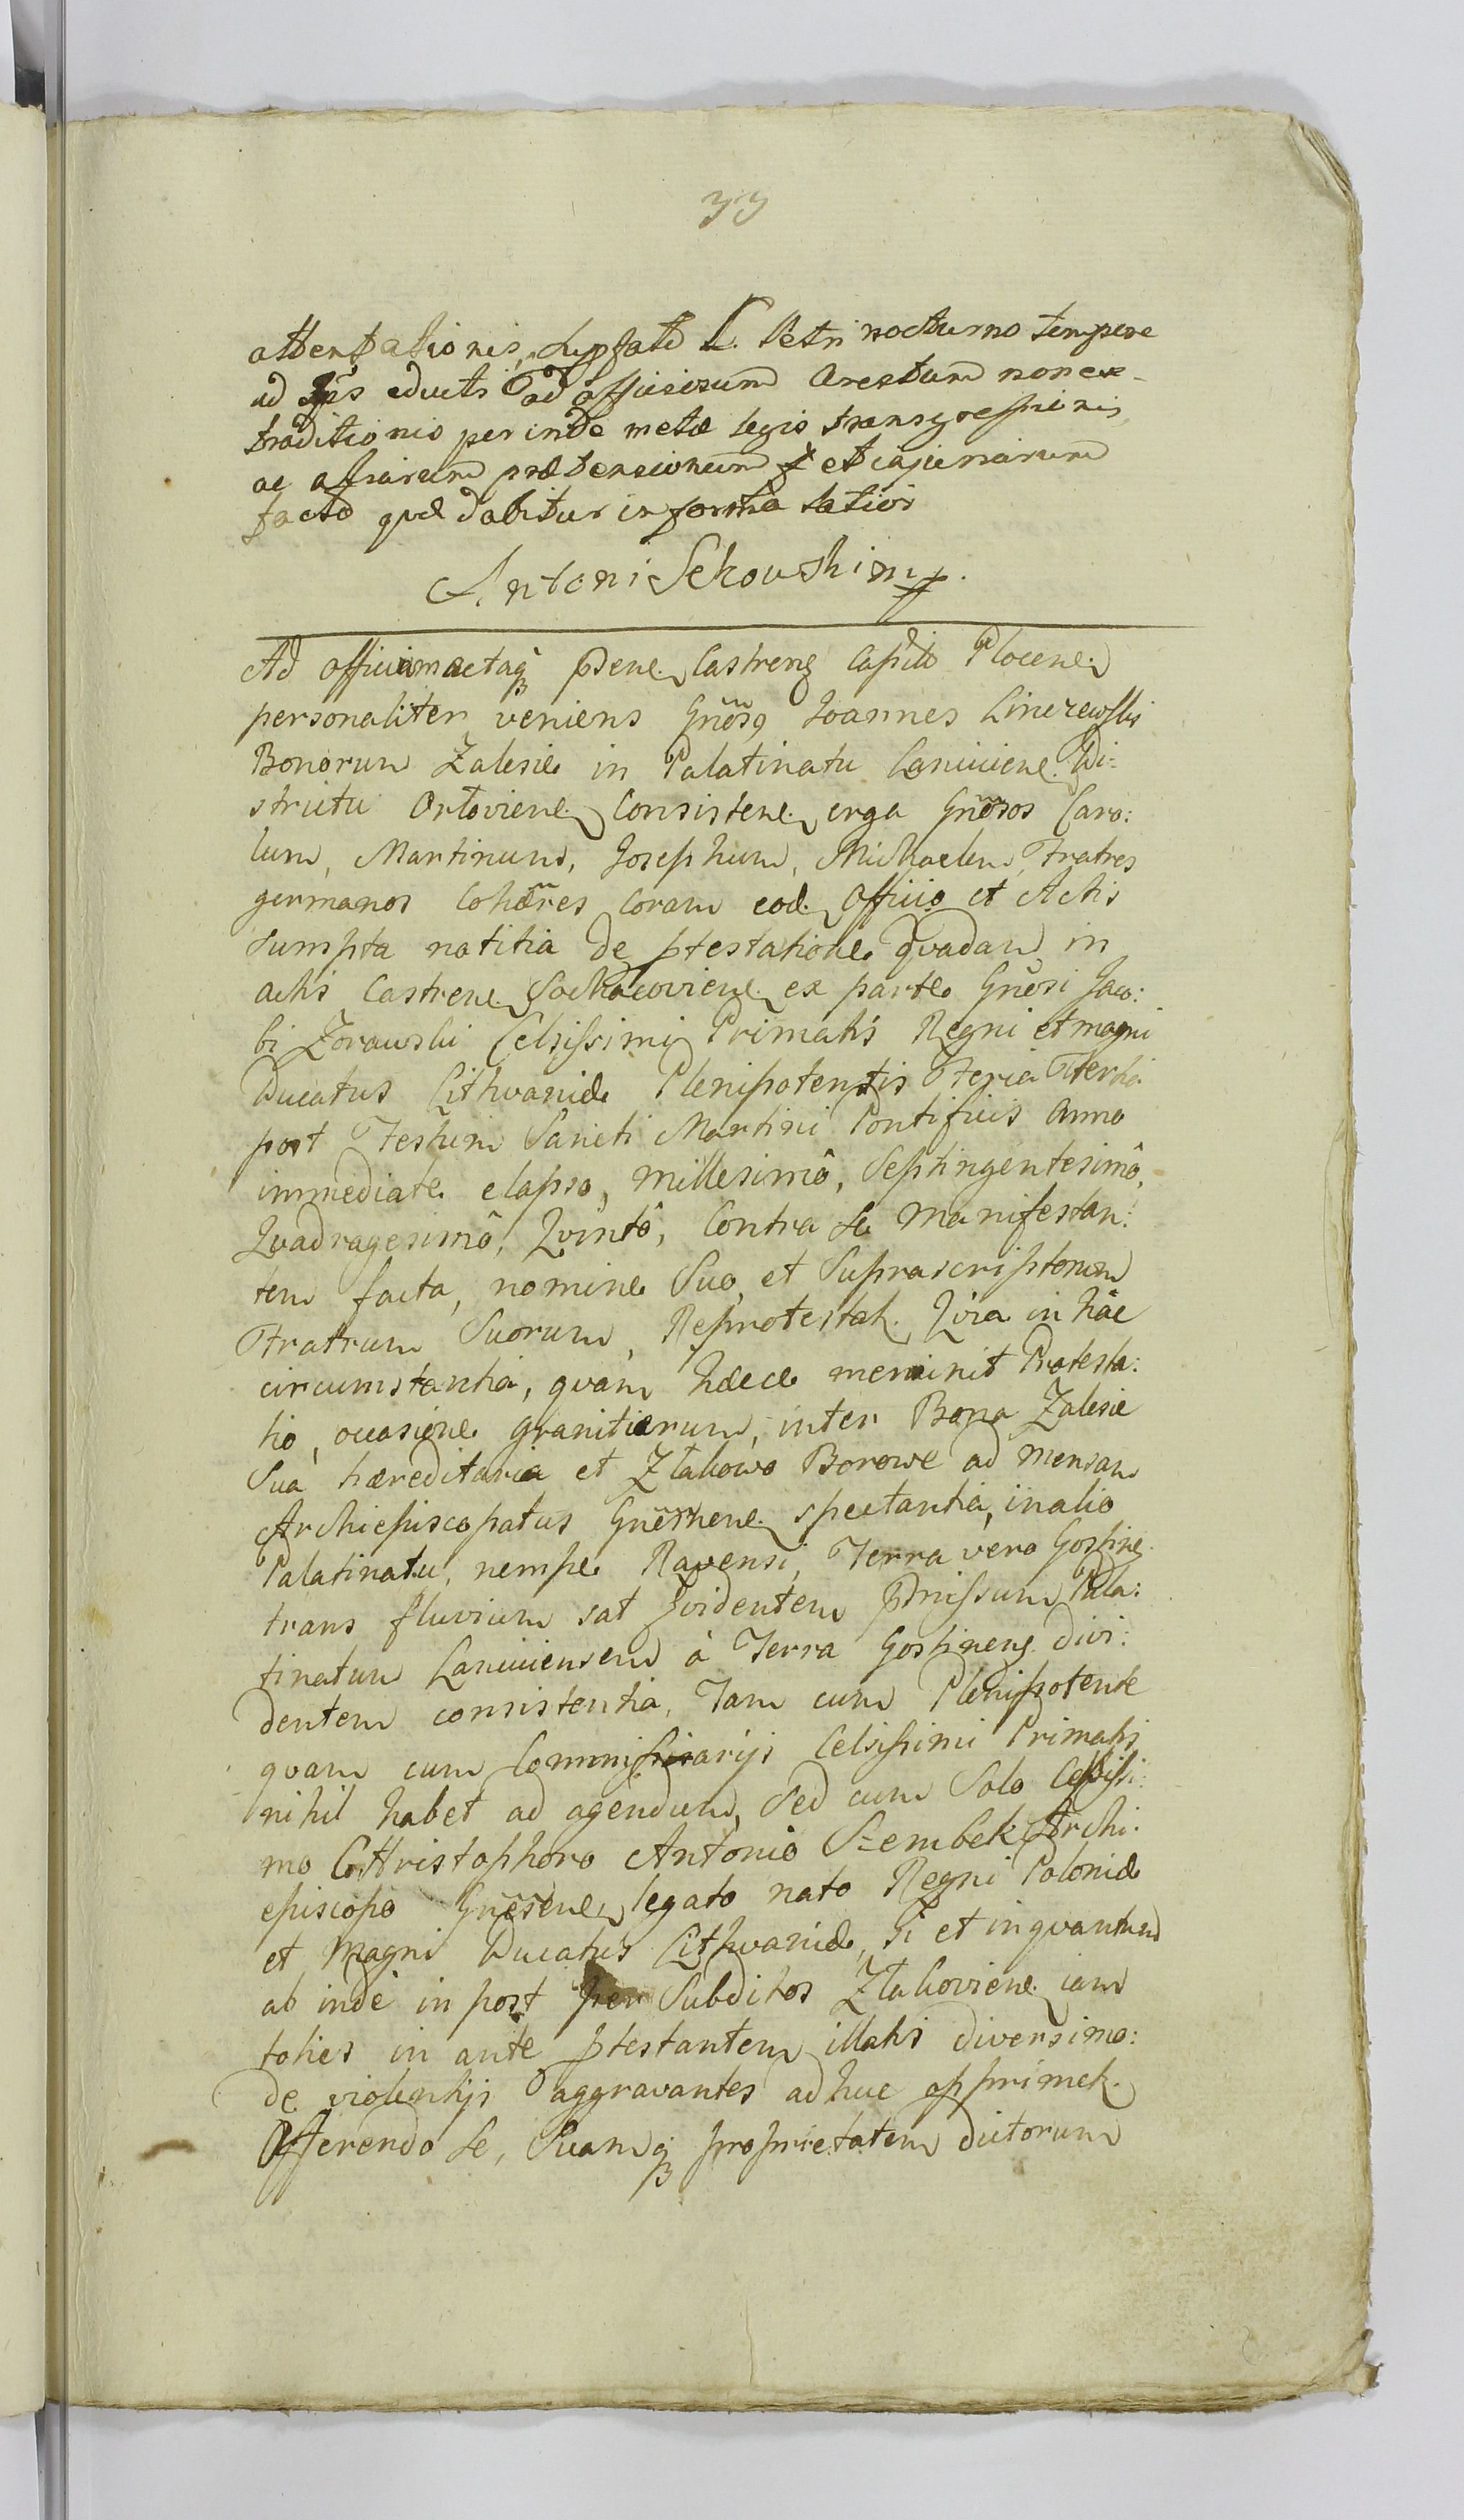 33
attentationis, supfate L. Petri nocturno tempore
ad educti ad officiosum Arestum non ex-
traditionis perinde metæ legis transgressionis,
ac aliarum prætensionum et injuriarum
facto quæ dabitur in forma latiori
Antoni Sekowski mp.
Ad officium actaq pdene. Castrenę Capitte Plocene.
personaliter veniens Gnõsq Joannes Linczewski
Bonorum Zalesie in Palatinatu Lanciciene. Di:
strictu Orloviene. Consistene. erga Gnõsos Caro:
lum, Martinum, Josephum, Michaelem, Fratres
germanos Cohæres coram eod. Officio et Actis
sumpta notitia de ptestatione quadam in
actis Castrene. Sochacoviene. ex parte Gnõsi Jaco:
bi Zorawski Celsissimi Primatis Regni et magni
Ducatus Lithvaniæ Plenipotentis Feria Tertia
post Festum Sancti Martini Pontificis Anno
immediate elapso, millesimô, Septingentesimô,
Qvadragesimô, Qvintô, Contra se manifestan:
tem facta, nomine Suo, et Suprascriptorum
Fratrum Suorum, Reprotestat. Qvia in hâc
circumstantia, qvam hæcce meminit Protesta:
tio, occasione granitierum, inter Bona Zalesie
Sua hæreditaria et Zlakowo Borowe ad mensam
Archiepiscopatus Gnesnene. spectantia, in alio
Palatinatu, nempe Ravensi, Terra vero Gostine.
trans fluvium sat Evidentem pmissum Pala:
tinatum Lanciciensem à Terra Gostinene. divi:
dentem consistentia, Tam cum Plenipotente
qvam cum Commissarijs Celsissimi Primatis
nihil habet ad agendum, Sed cum Solo Celsissi:
mo Christophoro Antonio Szembek Archi:
episcopo Gnesnene. legato nato Regni Poloniæ
et Magni Ducatus Lithvaniæ, si et inqvantum
ab inde in post per Subditos Zlakoviene. iam
toties in ante ptestantem illatis diversimo:
de violentijs aggravantes adhuc opprimet.
Offerendo Se, Suamq proprietatem dictorum